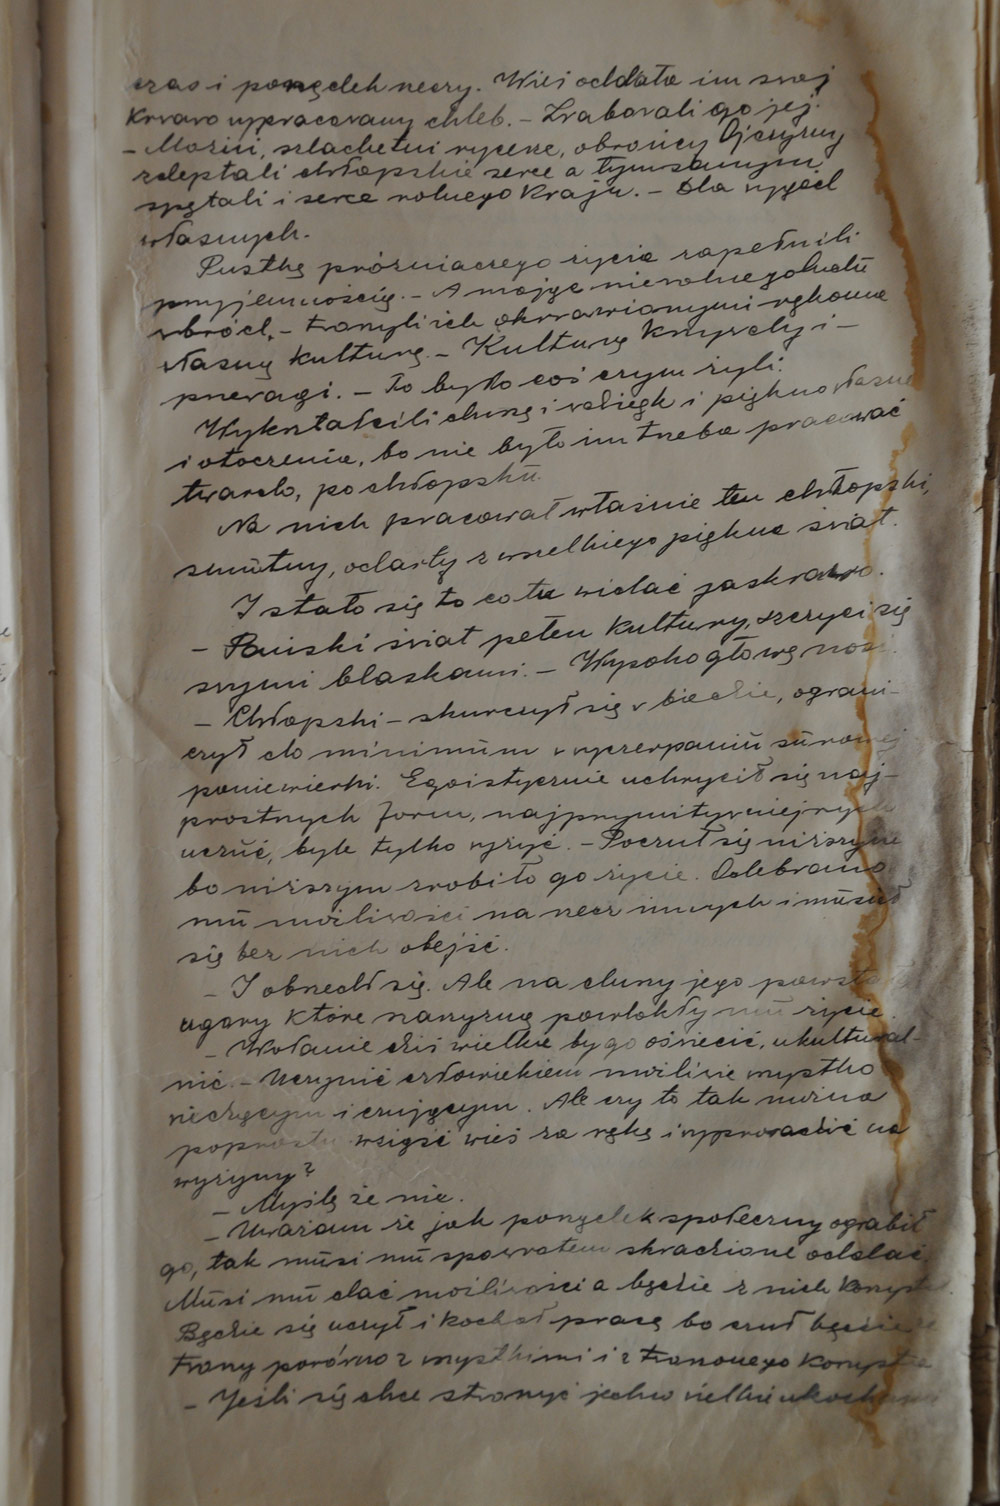 czas i porządek rzeczy. Wieś oddała im swój
krwawo wypracowany chleb. – Zrabowali go jej.
– Możni, szlachetni rycerze, obrońcy Ojczyzny
zdeptali chłopskie serce a tymsamym
spętali i serce rolnego kraju. – Dla wygód
własnych.
Pustkę próżniaczego życia zapełnili
przyjemnością. – A mając niewolnego ludu
wbród, – tworzyli ich okrwawionymi rękoma
własną kulturę. – Kulturę krzywdy i –
przewagi. – To było coś czym żyli.
Wykształcili dumę i wdzięk i piękno własne
i otoczenia, bo nie było im trzeba pracować
twardo, po chłopsku.
Na nich pracował właśnie ten chłopski,
smutny, odarty z wszelkiego piękna świat.
I stało się to co tu widać jaskrawo.
– Pański świat pełen kultury, szczyci się
swymi blaskami. – Wysoko głowę nosi.
– Chłopski – skurczył się w biedzie, ograni-
czył do minimum w wyczerpaniu surowej
poniewierki. Egoistycznie uchwycił się naj-
prostszych form, najprymitywniejszych
uczuć, byle tylko wyżyć. – Poczuł się niższym
bo niższym zrobiło go życie. Odebrano
mu możliwości na rzecz innych i musiał
się bez nich obejść.
– I obszedł się. Ale na duszy jego powstały
ugory które zarzyzną powlokły mu życie.
– Wołanie dziś wielkie by go oświecić, ukultural-
nić. – Uczynić człowiekiem możliwie wszystko
wiedzącym i czującym. Ale czy to tak można
poprostu wziąść wieś za rękę i wyprowadzić na
wyżyny?
– Myślę że nie.
– Uważam że jak porządek społeczny ograbił
go, tak musi mu spowrotem skradzione oddać.
Musi mu dać możliwości a będzie z nich korzystał
Będzie się uczył i kochał pracę bo czuł będzie że
tworzy porówno z wszystkimi i z tworzonego korzysta
– Jeśli się chce stworzyć jedno wielkie